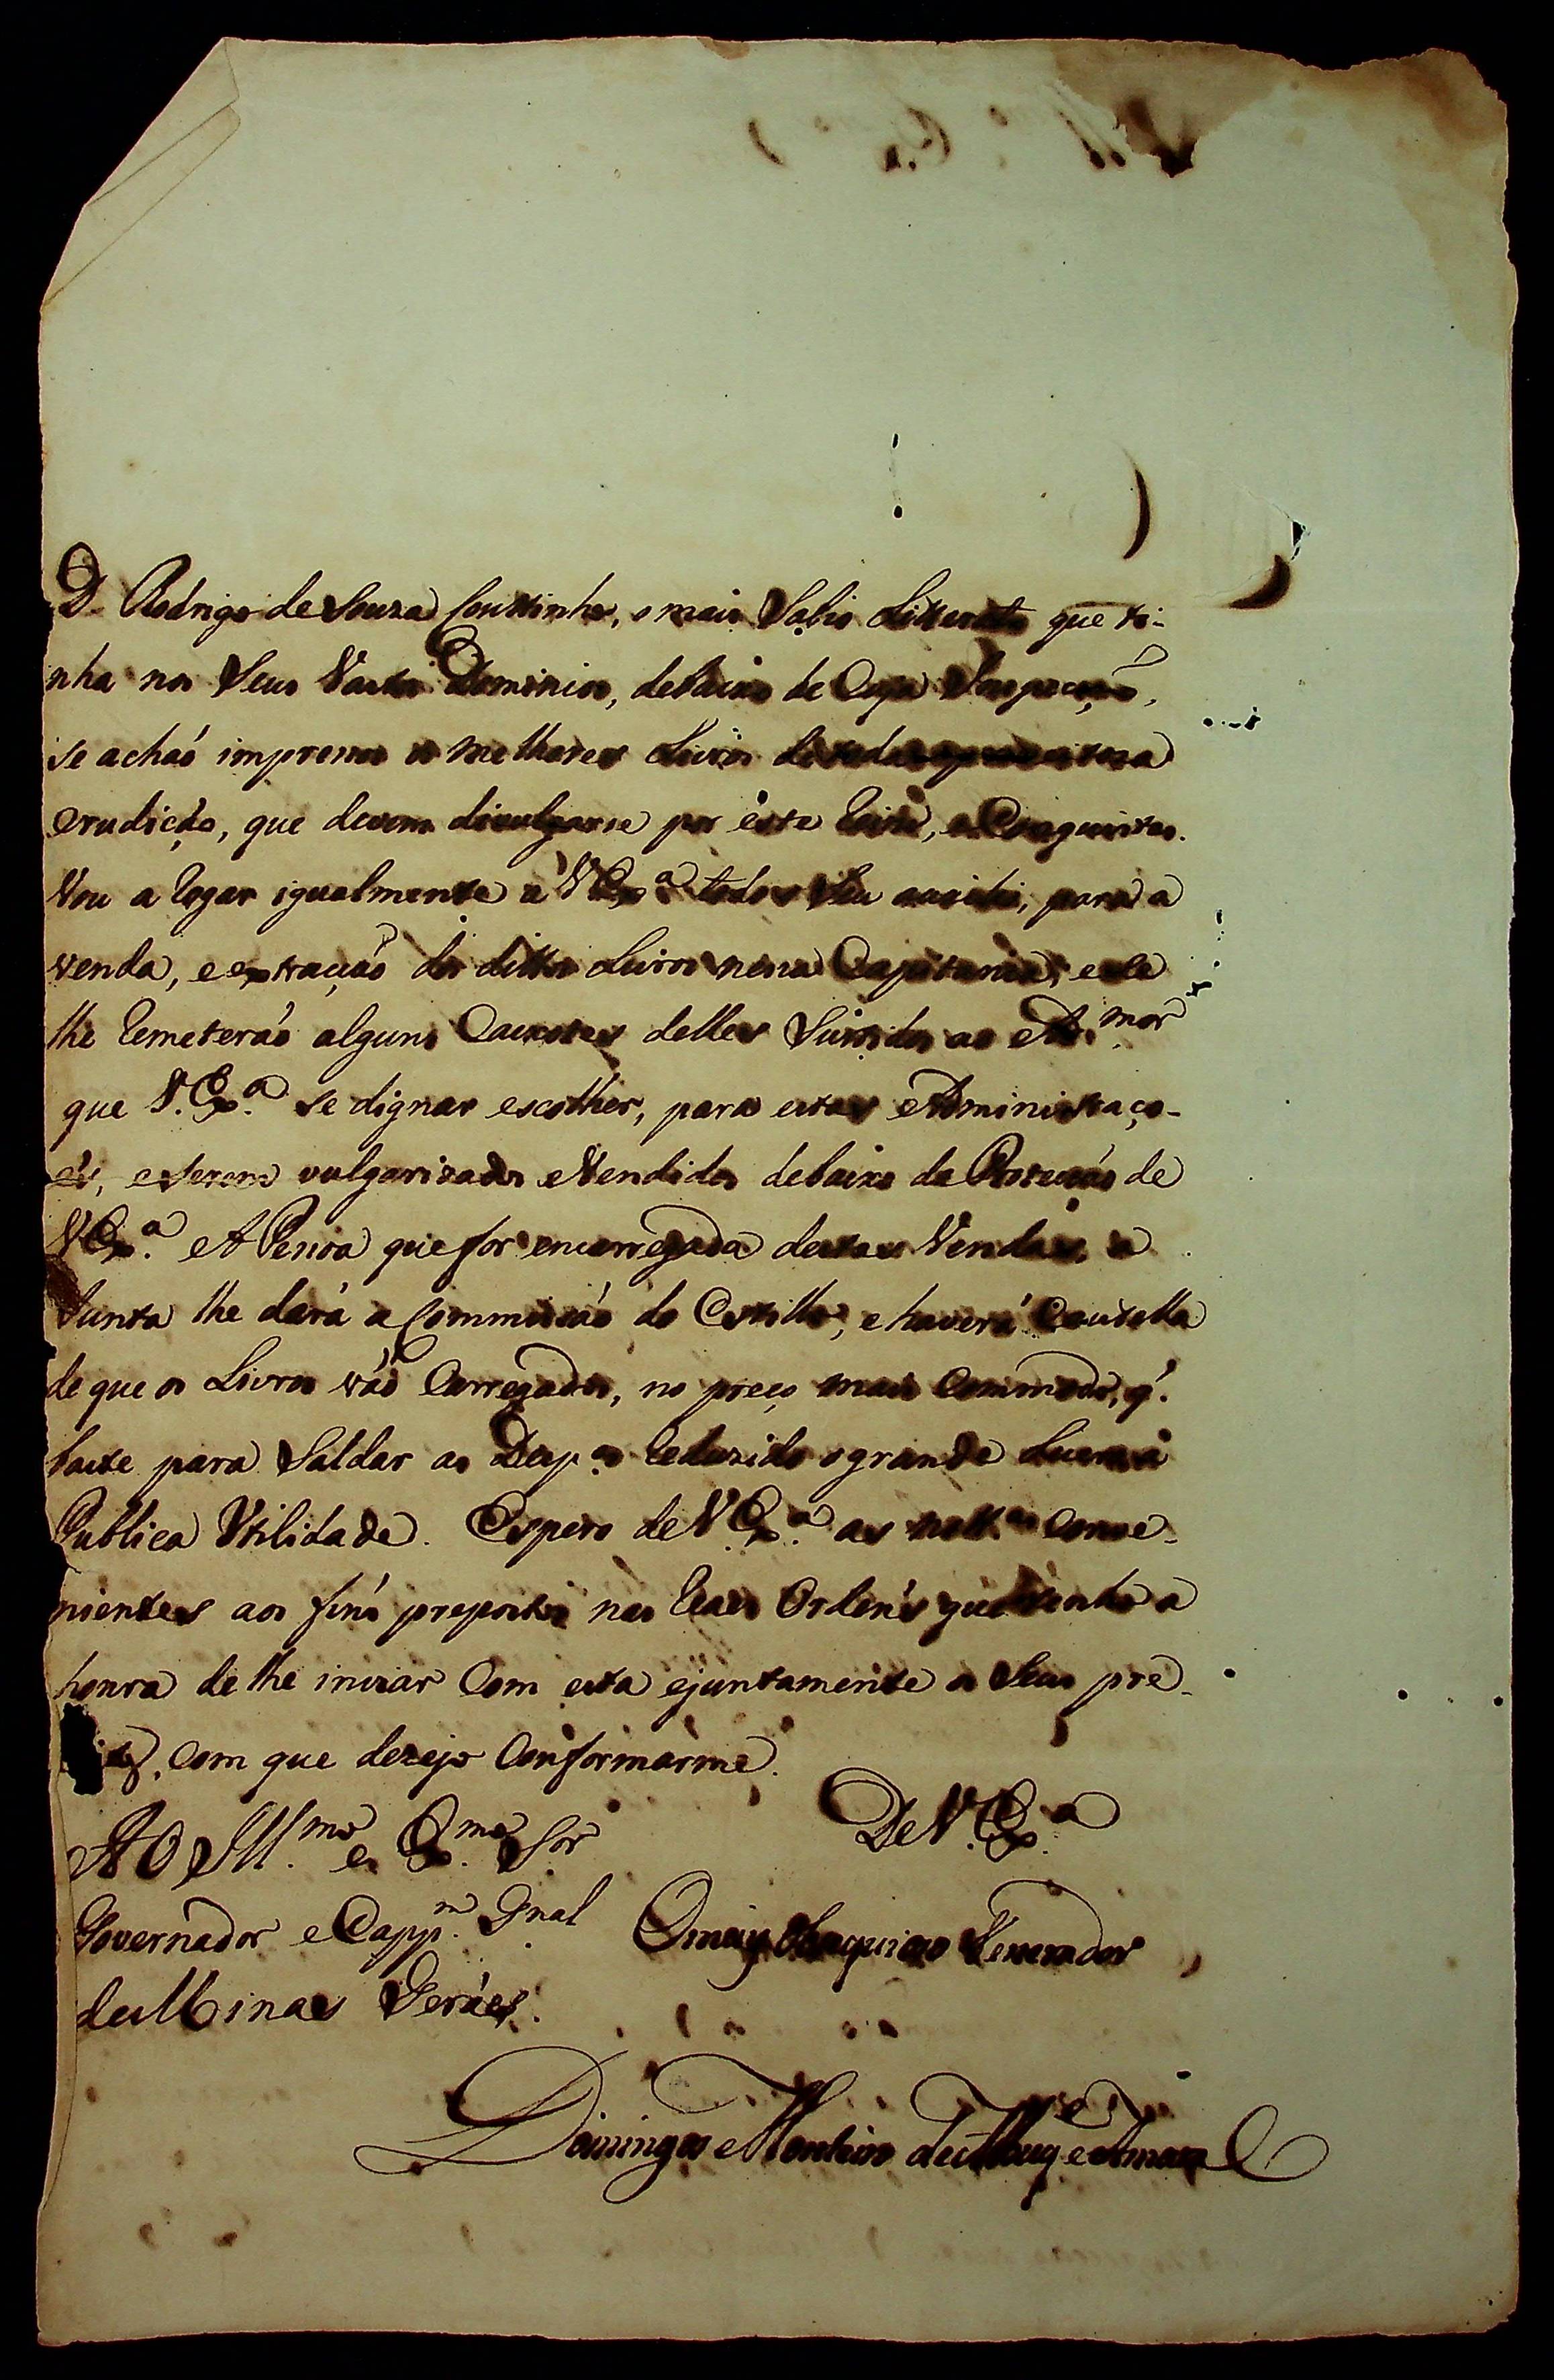 D. Rodrigo de Souza Couttinho, o mais Sabio Litterato que ti-
nha nos Seus Vastos Dominios, debaixo de Cuja Inspecçaõ,
se achaõ impressos os melhores Livros de toda
erudicção, que devem divulgarse por este e Conquistas.
Vou a rogar igualmente a V Exª. todo o Seu auxilio, para a
venda, e extracçaõ dos dittos Livros nessa Capitania, e se
lhe remeteraõ alguns Caixotes delles Surtidos ao Adm.mor
que V. Exª. se dignar escolher, para estas Administraço-
ẽs, e serem vulgarizados e Vendidos debaixo da Protecçaõ de
V Exª. A Pessoa que for encarregada destas Vendas, a
Junta lhe dará a Commissaõ do Estillo, e haverá Cautella
de que os Livros vaõ Carregados, no preço mais Commodo, q'.
baste para Saldar as Desp.as reduzido o grande Lucro á
Publica Utilidade. Espero de V. Exª. as Conve-
nientes aos fins propostos nas Reaes Ordens que tenho a
honra de lhe inviar Com esta e juntamente os Seus pre-
com que dezejo Conformarme.
De V. Exª
AO Ill.mo e Ex.mo Sor
Governador e Capp.m Gnal
de Minas Geráes.
O mais Venerador
Domingos Monteiro de Albuq.e e Amaral